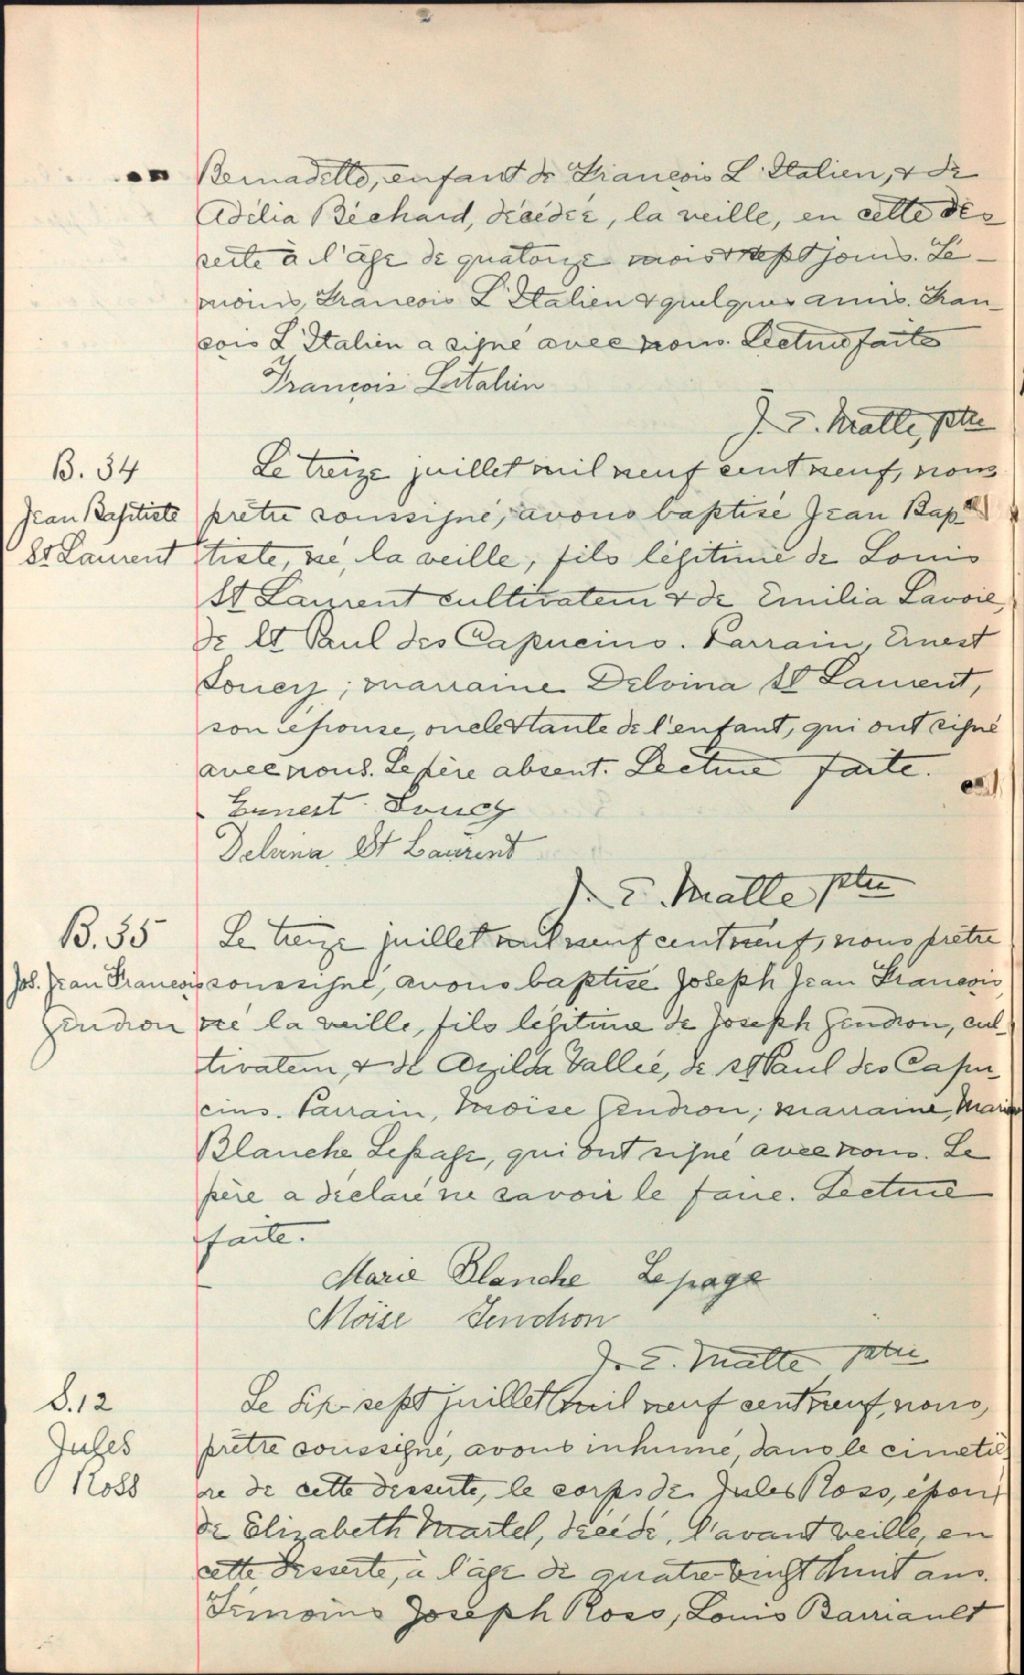 Bernadette, enfant de François L'Italien, & de
Adélia Béchard, décédée, la veille, en cette des-
serte à l'âge de quatorze mois & sept jours. Té-
moins, François L'Italien & quelques amis. Fran-
çois L'Italien a signé avec nous. Lecture faite
François Litalien
J. E. Matte, ptre
B. 34
Jean Baptiste
St Laurent
Le treize juillet mil neuf cent neuf, nous
prêtre soussigné, avons baptisé Jean Bap-
tiste, né, la veille, fils légitime de Louis
St Laurent cultivateur & de Emilia Lavoie,
de St Paul des Capucins. Parrain, Ernest
Soucy; marraine Delvina St Laurent,
son épouse, oncle & tante de l'enfant, qui ont signé
avec nous. Le père absent. Lecture faite.
Ernest Soucy
Delvina St Laurent
J. E. Matte ptre
B. 35
Jos. Jean François
Gendron
Le treize juillet mil neuf cent neuf, nous prêtre
soussigné, avons baptisé Joseph Jean François,
né la veille, fils légitime de Joseph Gendron, cul-
tivateur, & de Azilda Vallée, de St Paul des Capu-
cins. Parrain, Moïse Gendron; marraine, Marie
Blanche Lepage, qui ont signé avec nous. Le
père a déclaré ne savoir le faire. Lecture
faite.
Marie Blanche Lepage
Moïse Gendron
J. E. Matte ptre
S. 12
Jules
Ross
Le dix-sept juillet mil neuf cent neuf, nous,
prêtre soussigné, avons inhumé, dans le cimetiè
re de cette desserte, le corps de Jules Ross, époux
de Elizabeth Martel, décédé, l'avant veille, en
cette desserte, à l'âge de quatre-vingt huit ans.
Témoins Joseph Ross, Louis Barriault